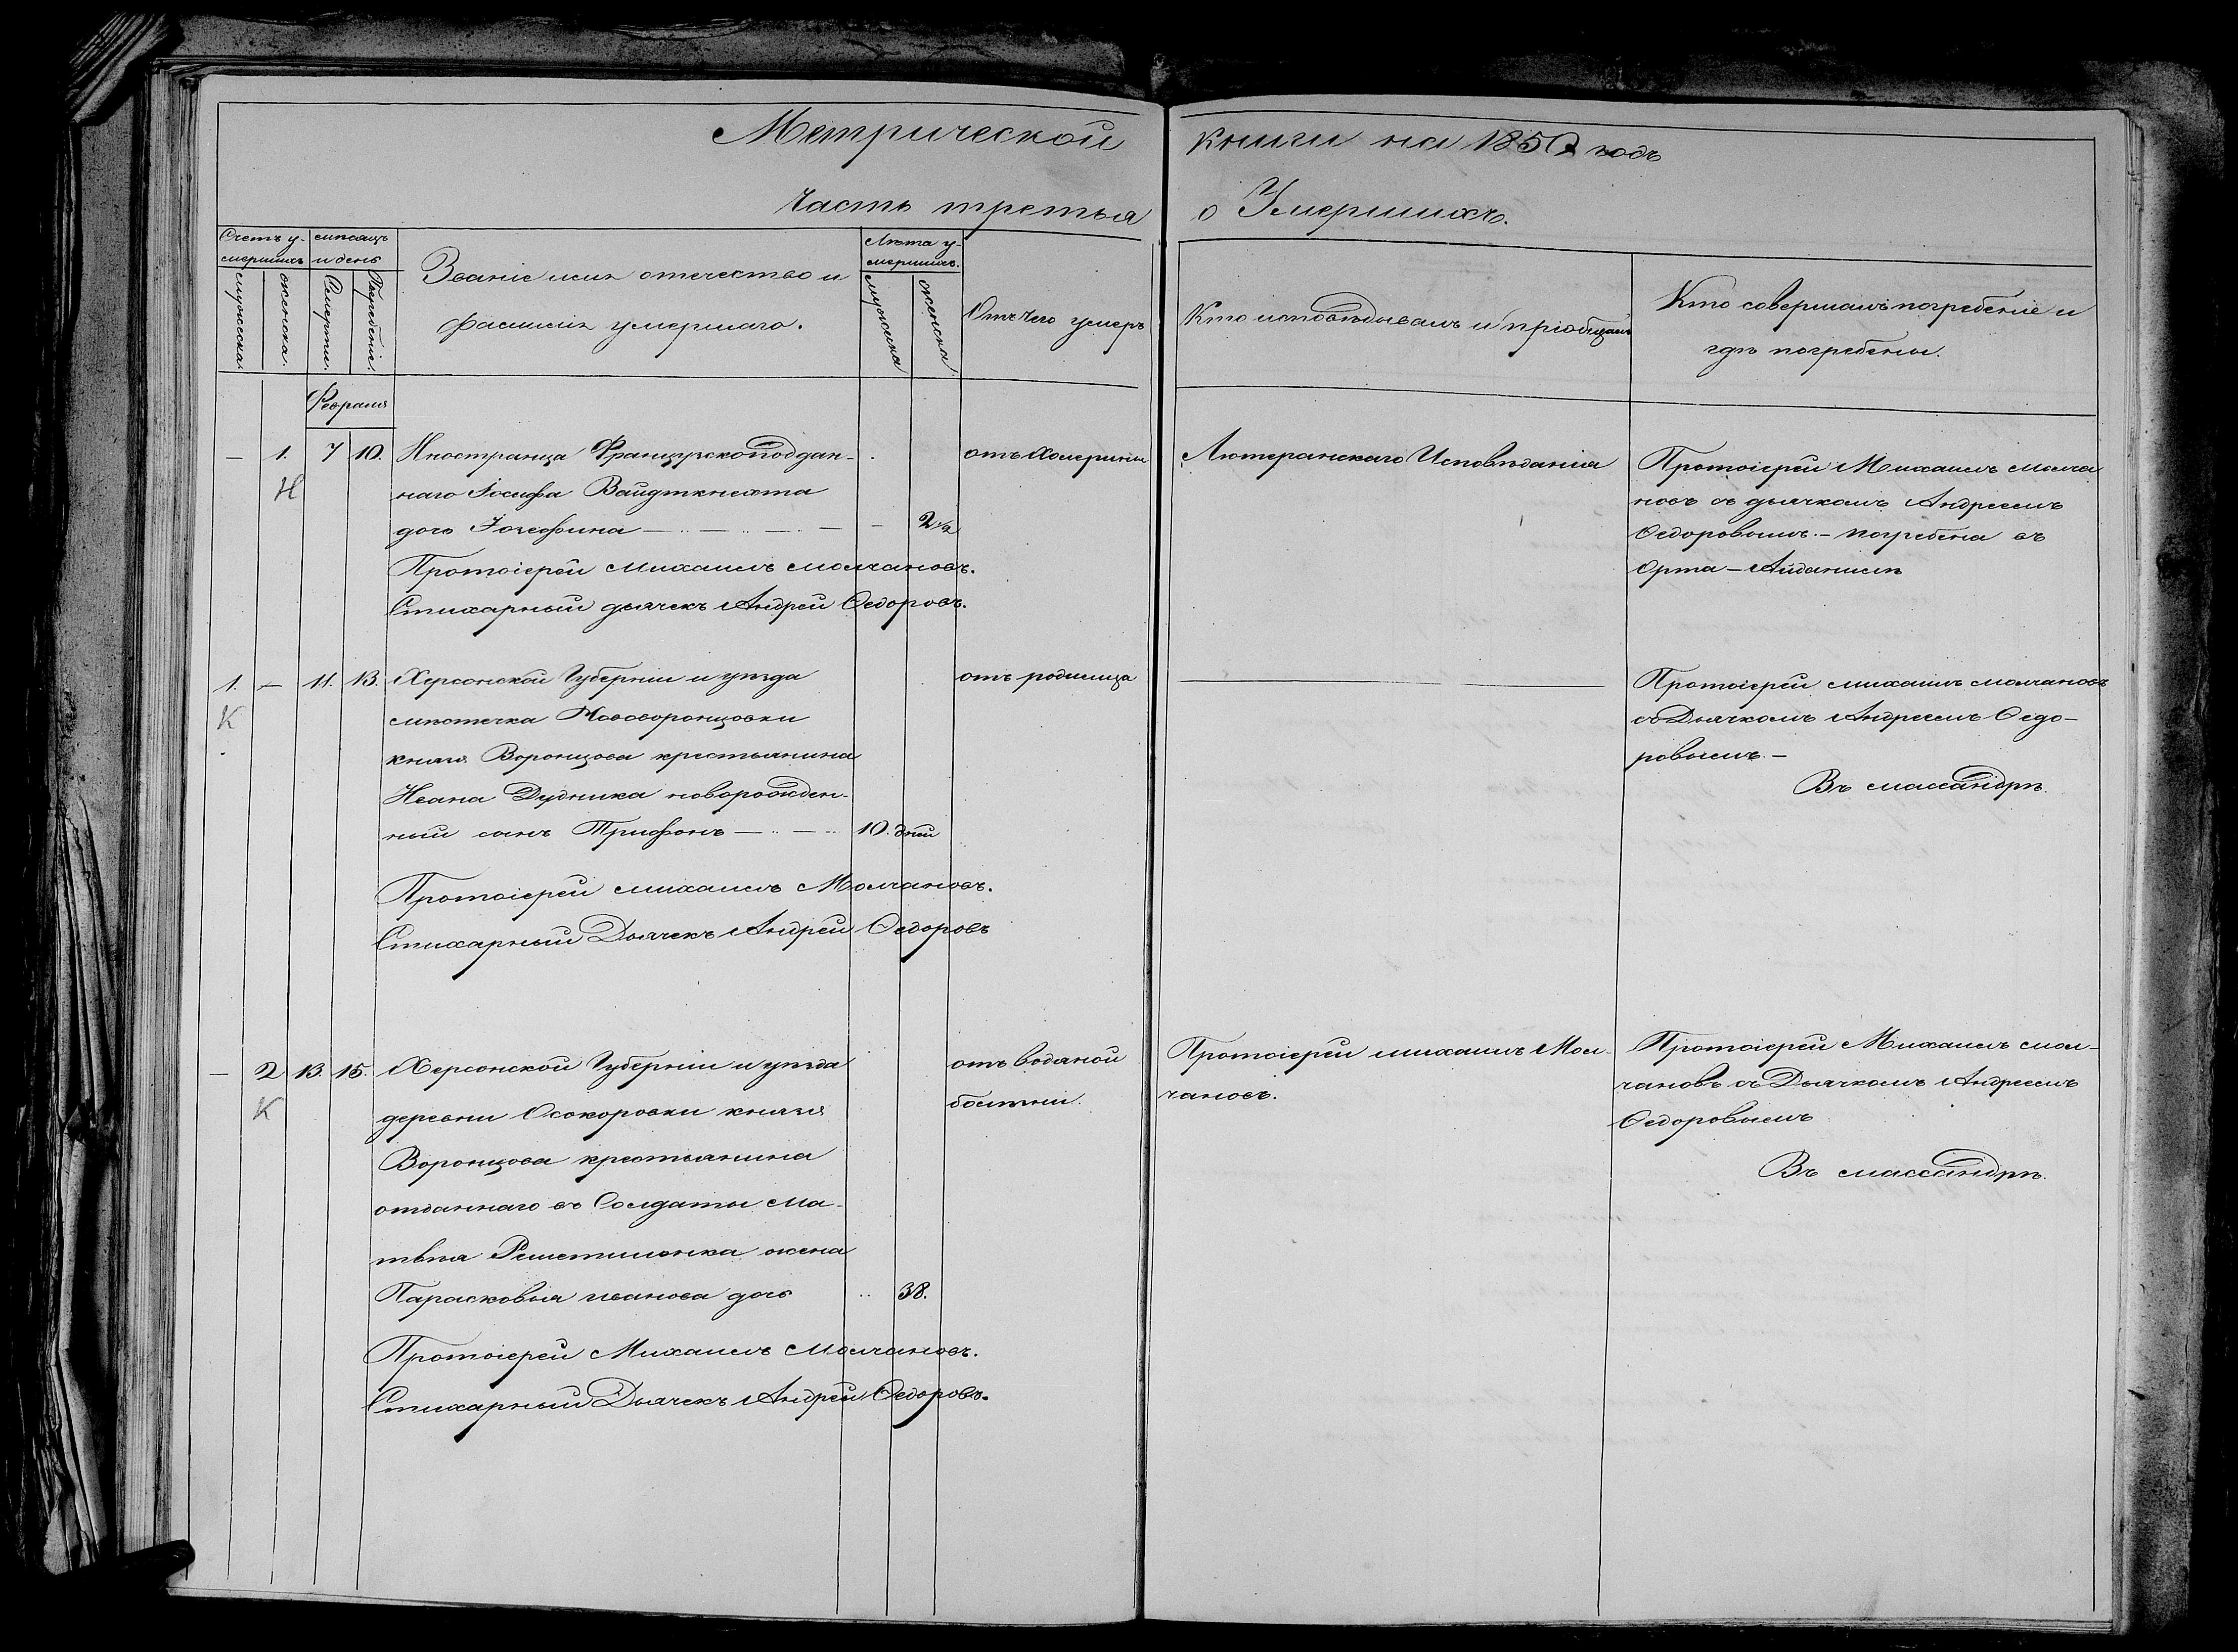 Метрической книги на 1850 годъ
Часть третья о Умершихъ.
Счетъ у-
мершихъ
мужеска.
женска.
мѣсяцъ
и день
Смерти.
Погребенія.
Званіе имя отечество и
фамилія умершаго.
Лѣта у-
мершихъ.
мужеска
женска
Отъ чего умеръ
Кто исповѣдывалъ и пріобщалъ
Кто совершалъ погребеніе и
гдѣ погребены.
Февраля
— 1. 7 10. Иностранца Французскоподдан- отъ Холерины Лютеранскаго Исповѣданія Протоіерей Михаилъ Молча
Н наго Іосифа Вайдткнехта новъ съ дьячкомъ Андреемъ
дочь Іозефина — — — — 2½ Ѳедоровымъ. — погребена въ
Протоіерей Михаилъ Молчановъ. Орта — Айданилѣ
Стихарный дьячекъ Андрей Ѳедоровъ.
1. — 11. 13. Херсонской Губерніи и уѣзда отъ родимца Протоіерей Михаилъ Молчановъ
К мѣстечка Нововоронцовки съ Дьячкомъ Андреемъ Ѳедо-
князя Воронцова крестьянина ровымъ. —
Ивана Дудника новорожден- Въ Массандрѣ.
ный сынъ Трифонъ — — 10. дней
Протоіерей Михаилъ Молчановъ.
Стихарный Дьячекъ Андрей Ѳедоровъ
— 2 13. 15. Херсонской Губерніи и уѣзда отъ водяной Протоіерей Михаилъ Мол- Протоіерей Михаилъ Мол-
К деревни Осокоровки князя болѣзни. чановъ. чановъ съ Дьячкомъ Андреемъ
Воронцова крестьянина Ѳедоровымъ
отданнаго въ Солдаты Ма- Въ Массандрѣ.
твѣя Решетиленка жена
Парасковья иванова дочь 38.
Протоіерей Михаилъ Молчановъ.
Стихарный Дьячекъ Андрей Ѳедоровъ.